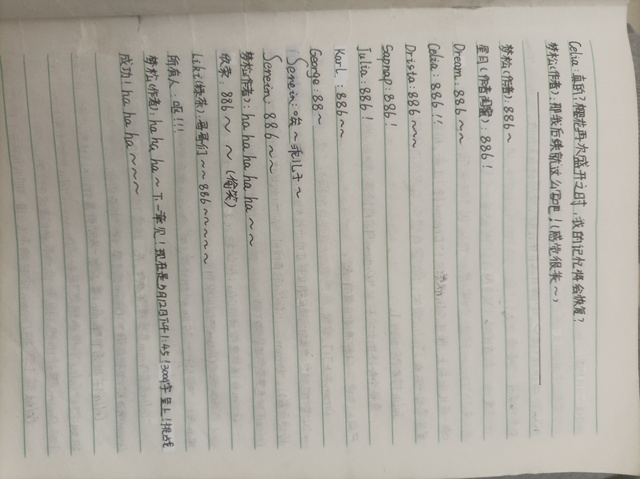 Celia:真的?樱花再次盛开之时,我的记忆将会恢复?
梦松(作者):那我后续就这么写吧!(感觉很美~)
梦松(作者):886~
星日(作者闺蜜):886!
Dream:886~~
Celia:886!!
Drista:886~~
Sapnap:886!
Julia:886!
Karl:886~~
George:88~
Serein:唉~乖儿子~
Serein:886~~
梦松(作者):ha ha ha ha ha~~
欣荣:886~~(偷笑)
Liki(绿茶):哥哥们~~886~~~~
所有人:呕!!!
梦松(作者):ha ha ha~下一章见!现在是5月12日下午1:45!3000字呈上!挑战
成功!ha ha ha~~~